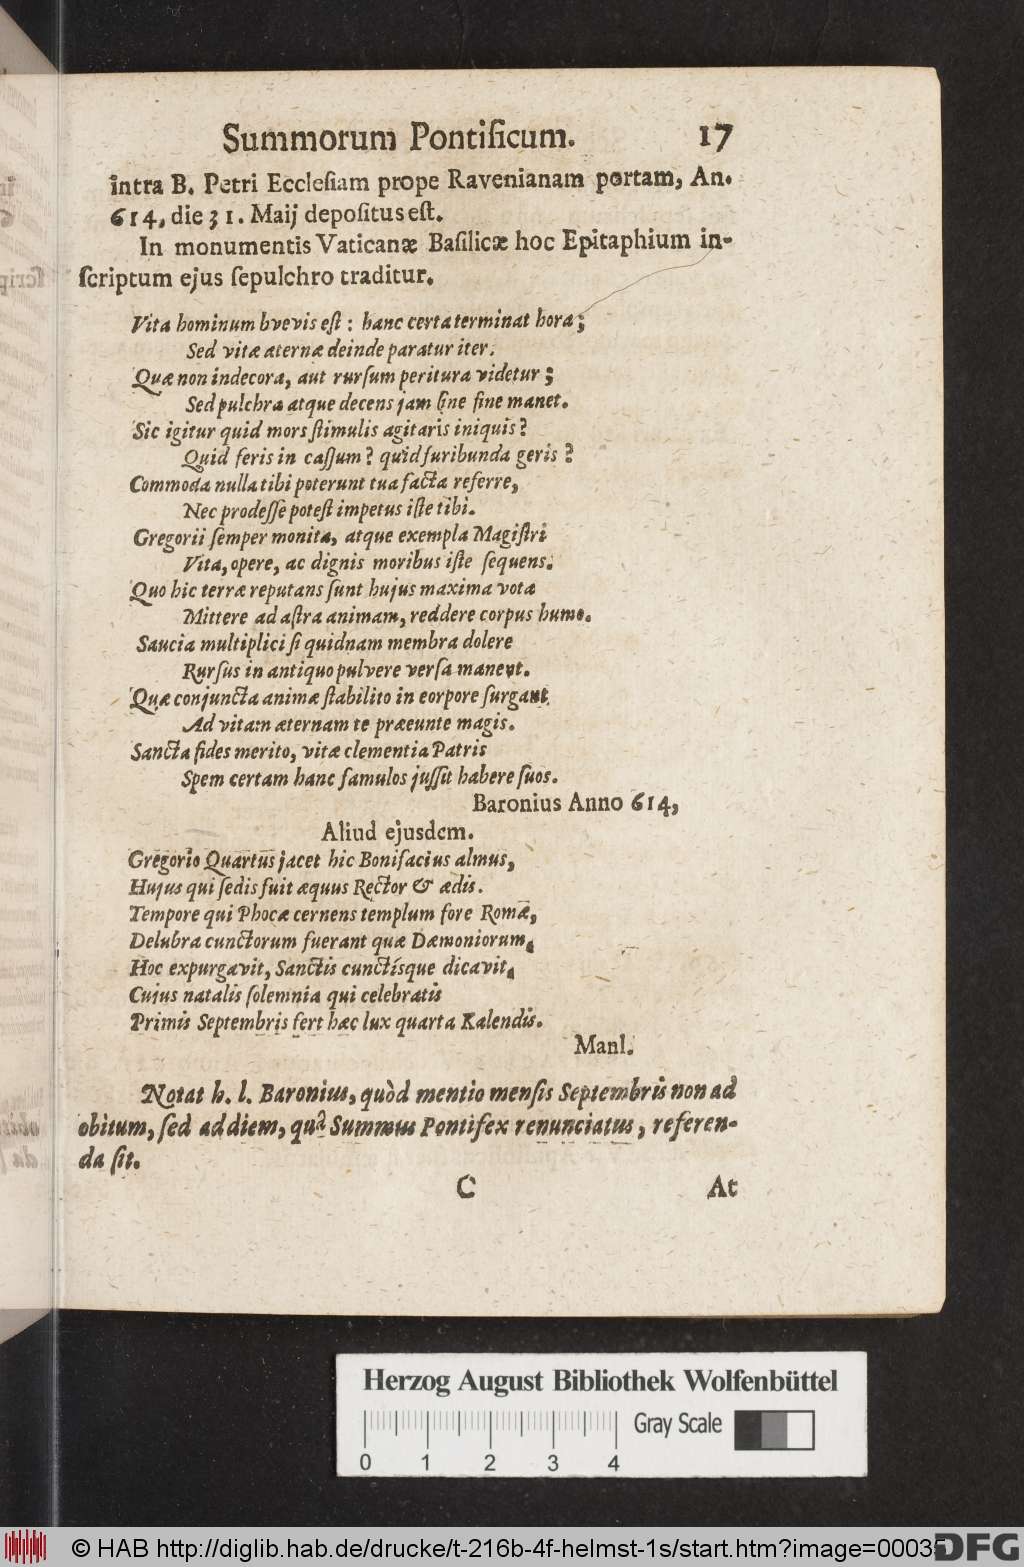 Summorum Pontificum. 17
intra B. Petri Ecclesiam prope Ravenianam portam, An.
614, die 31. Maij depositus est.
In monumentis Vaticanæ Basilicæ hoc Epitaphium in-
scriptum ejus sepulchro traditur.
Vita hominum brevis est: hanc certa terminat hora;
Sed vitæ aternæ deinde paratur iter.
Quæ non indecora, aut rursum peritura videtur;
Sed pulchra atque decens jam sine fine manet.
Sic igitur quid mors stimulis agitaris iniquis?
Quid feris in cassum? quid furibunda geris?
Commoda nulla tibi poterunt tua facta referre,
Nec prodesse potest impetus iste tibi.
Gregorii semper monita, atque exempla Magistri
Vita, opere, ac dignis moribus iste sequens.
Quo hic terræ reputans sunt hujus maxima vota
Mittere ad astra animam, reddere corpus humo.
Saucia multiplici si quidnam membra dolere
Rursus in antiquo pulvere versa manent.
Quæ conjuncta animæ stabilito in eorpore surgant
Ad vitam æternam te præeunte magis.
Sancta fides merito, vitæ clementia Patris
Spem certam hanc famulos jussit habere suos.
Baronius Anno 614,
Aliud ejusdem.
Gregorio Quartus jacet hic Bonifacius almus,
Hujus qui sedis fuit æquus Rector & ædis.
Tempore qui Phocæ cernens templum fore Romæ,
Delubra cunctorum fuerant quæ Dæmoniorum,
Hoc expurgavit, Sanctis cunctísque dicavit,
Cujus natalis solemnia qui celebratis
Primis Septembris fert hæc lux quarta Kalendis.
Manl.
Notat h. l. Baronius, quòd mentio mensis Septembris non ad
obitum, sed ad diem, quâ Summus Pontifex renunciatus, referen-
da sit.
C At
Herzog August Bibliothek Wolfenbüttel
Gray Scale
0 1 2 3 4
© HAB http://diglib.hab.de/drucke/t-216b-4f-helmst-1s/start.htm?image=00035
DFG